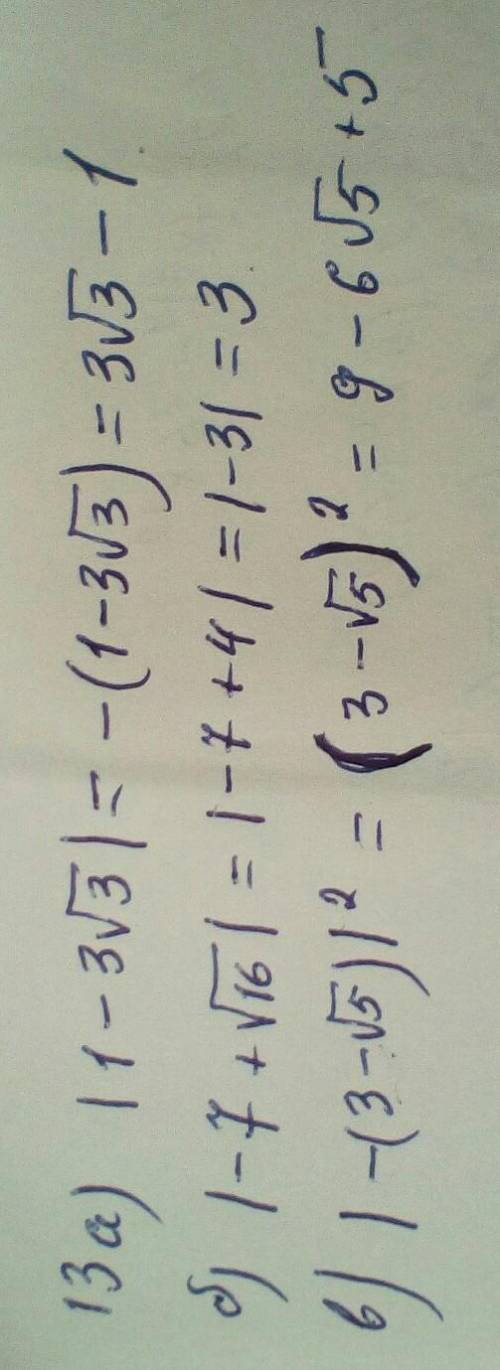 13 а) |1 - 3√3| = -(1 - 3√3) = 3√3 - 1
б) |-7 + √16| = |-7 + 4| = |-3| = 3
в) |-(3 - √5)|² = (3 - √5)² = 9 - 6√5 + 5